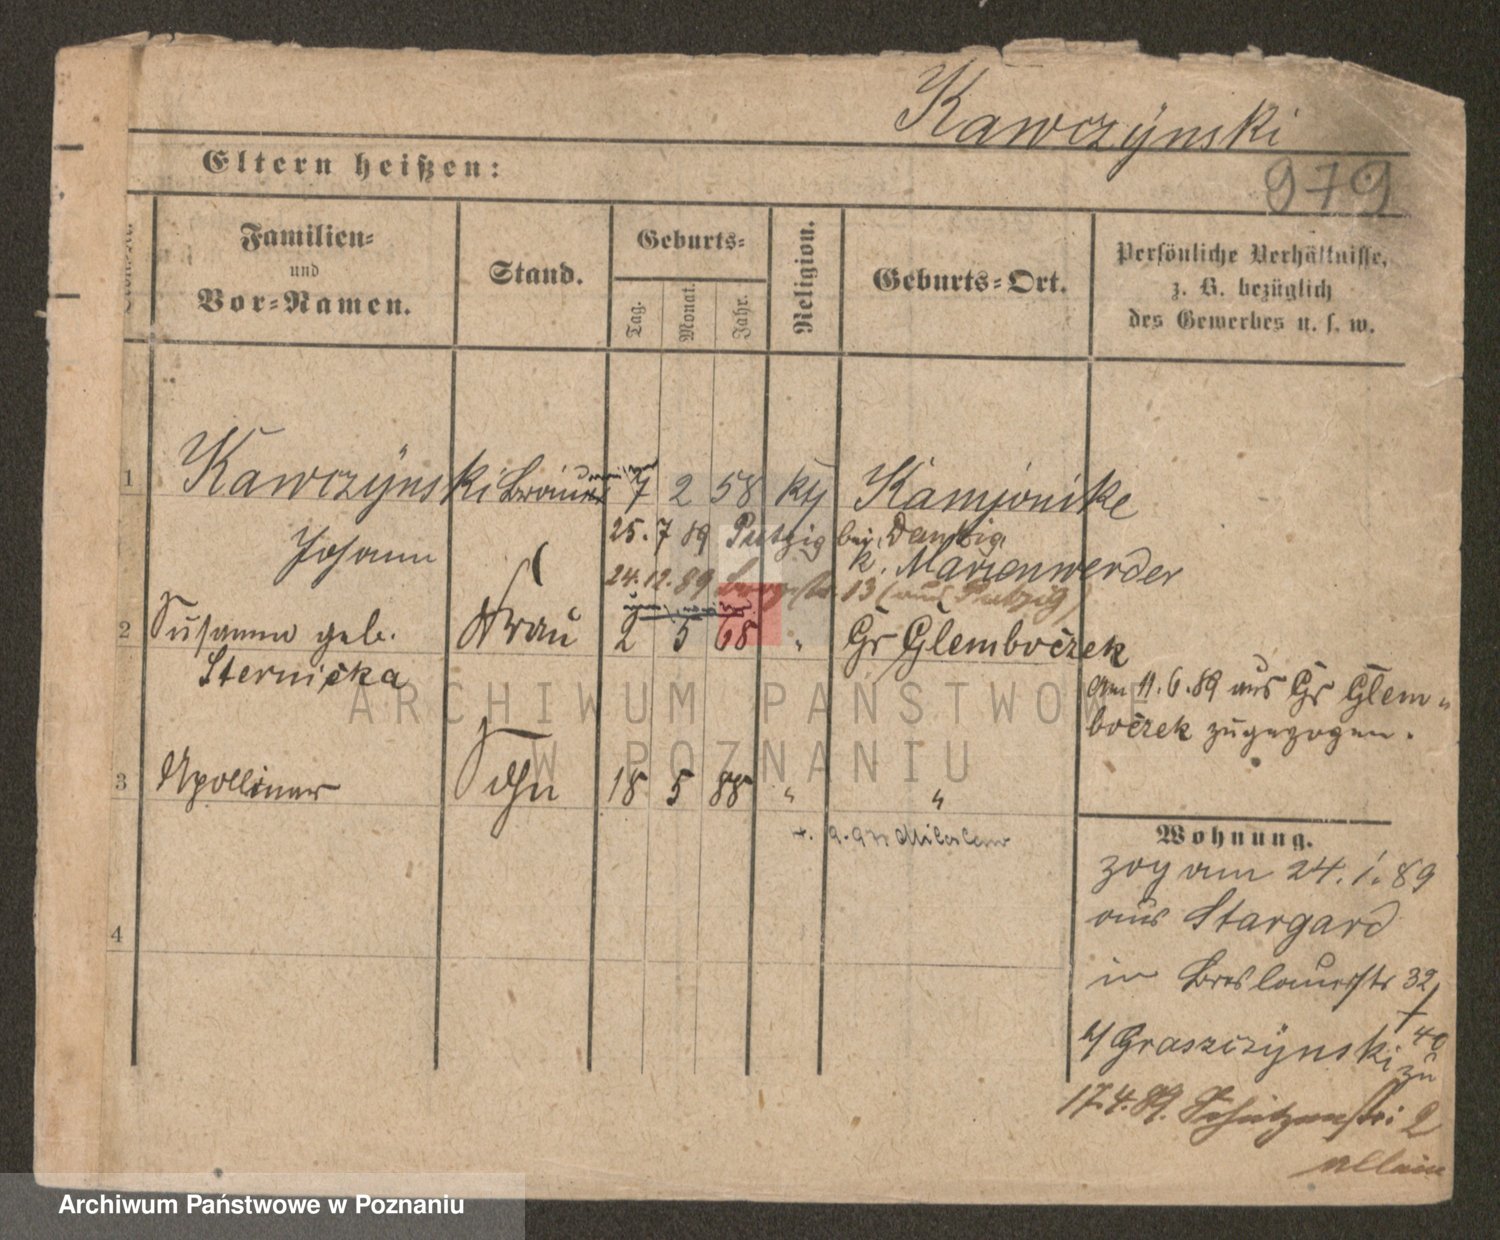 Kawczÿnski
979
Eltern heißen:
Familien-
und
Vor-Namen.
Stand.
Geburts-
Tag.
Monat.
Jahr.
Religion.
Geburts-Ort.
Persönliche Verhältnisse,
z. B. bezüglich
des Gewerbes u. s. w.
1 Kawczÿnski 7 2 58 Kamionike
Johann
25. 7 89 Putzig bei Danzig
k. Marienwerder
24.12.89 13 (aus Putzig)
2 Susanna geb. Frau 2 5 68 " Gr Glemboczek
Sternicka
am 11.6.89 aus Gr Glem-
boczek zugezogen.
3 Apollinar Sohn 18 5 88 " "
Miloslaw
4
Wohnung.
zog am 24.1.89
aus Stargard
in Breslauerstr 32
40
Graszczÿnski zu
17.4.89. Schützenstr 2
allein
ARCHIWUM PAŃSTWOWE
W POZNANIU
Archiwum Państwowe w Poznaniu